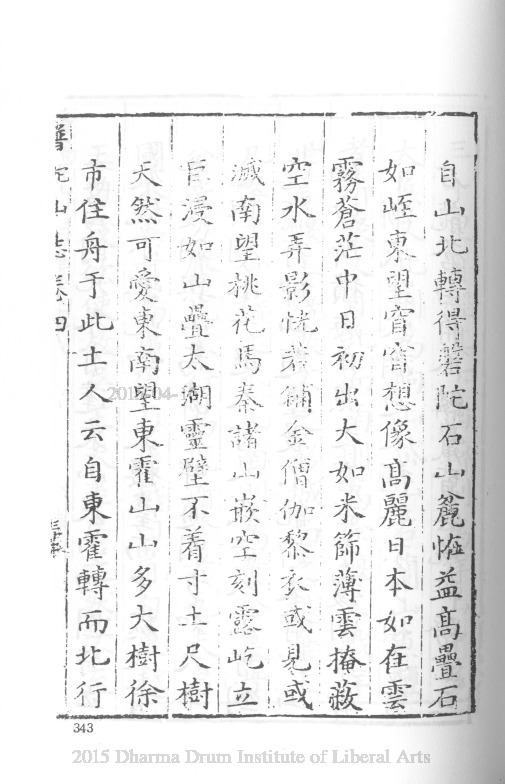 自山北轉得磐陀石山麓恠益高疊石
如峌東望窅窅想像高麗日本如在雲
霧蒼茫中日初出大如米篩薄雲掩蔽
空水弄影恍若鋪金僧伽黎衣或見或
滅南望桃花馬秦諸山嵌空刻露屹立
巨浸如山疊太湖靈壁不着寸土尺樹
天然可愛東南望東霍山山多大樹徐
市住舟于此土人云自東霍轉而北行
普陀山志卷四
343
2015 Dharma Drum Institute of Liberal Arts